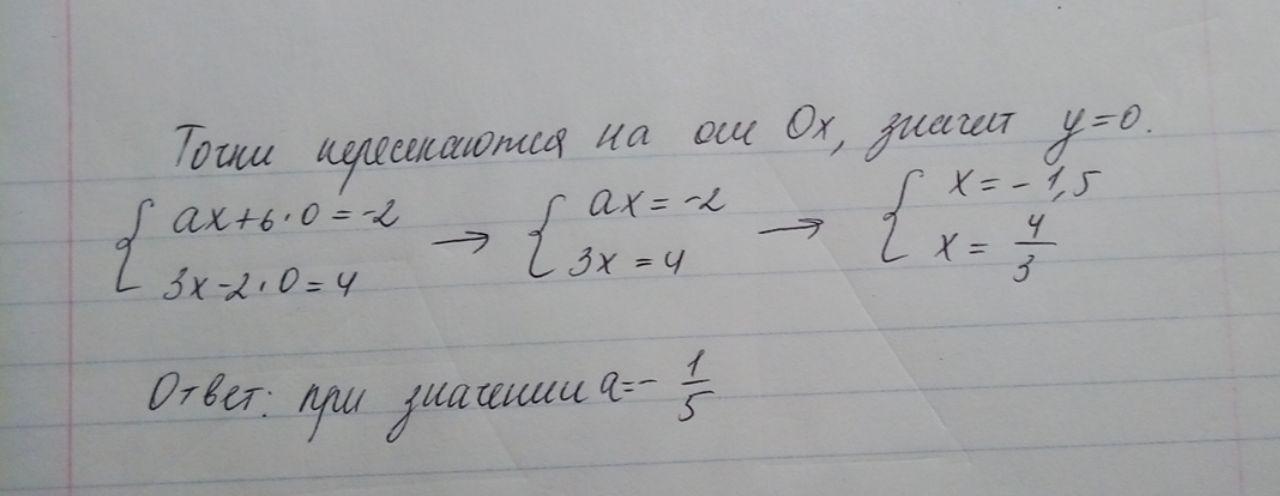 Точки пересекаются на оси Ox, значит y=0.
{ ax+6·0=-2 → { ax=-2 → { x=-1,5
3x-2·0=4 3x=4 x=4/3
Ответ: при значении a=-1/5